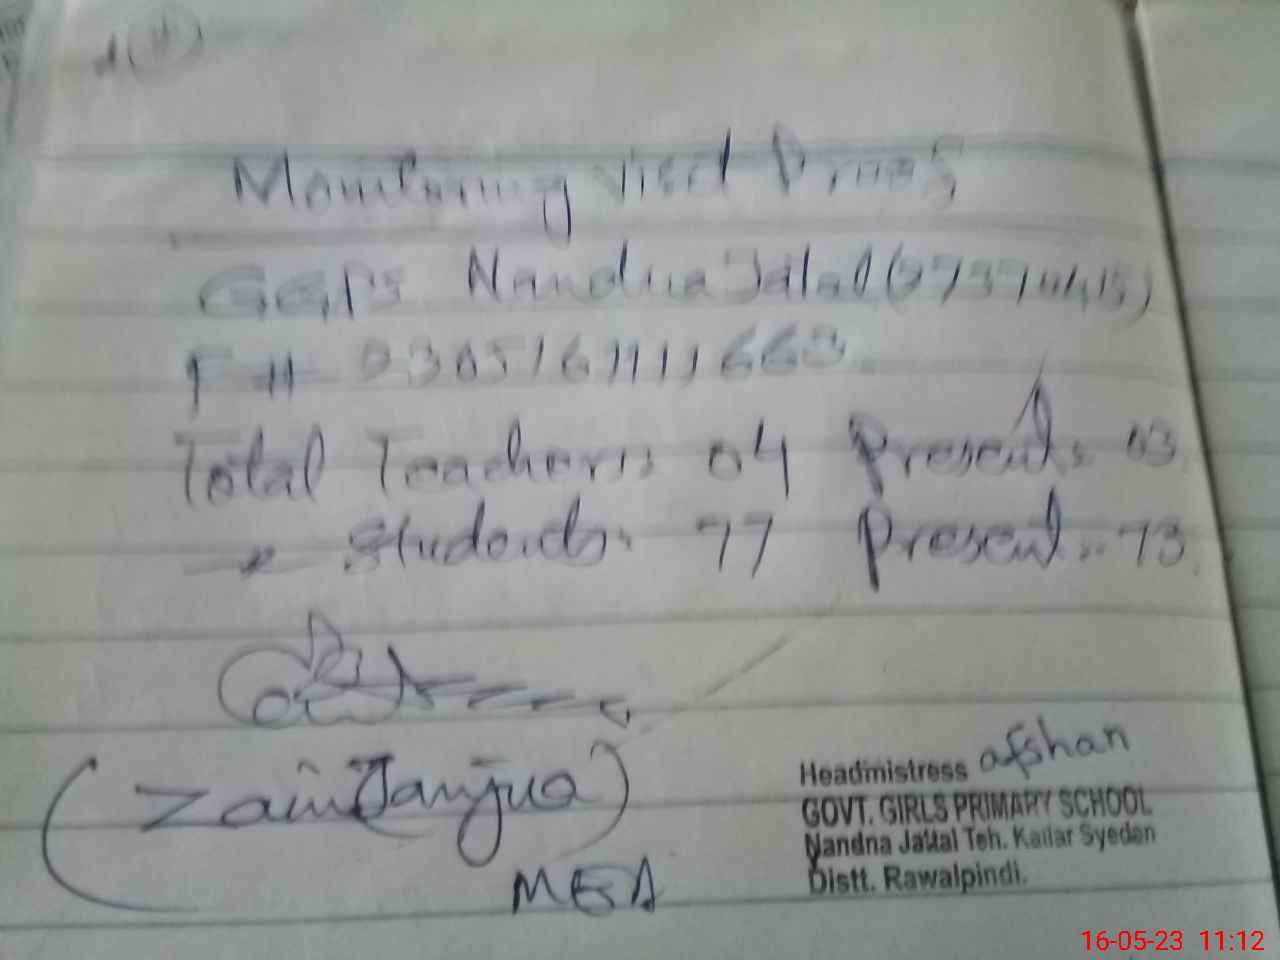 Monitoring Visit Proof
GGPS Nandna Jatal (373704
F #
Total Teachers: 04 Present: 03
" Students: 77 Present: 73
(Zain Janjua)
MEA
Headmistress afshan
GOVT. GIRLS PRIMARY SCHOOL
Nandna Jattal Teh. Kallar Syedan
Distt. Rawalpindi.
16-05-23 11:12